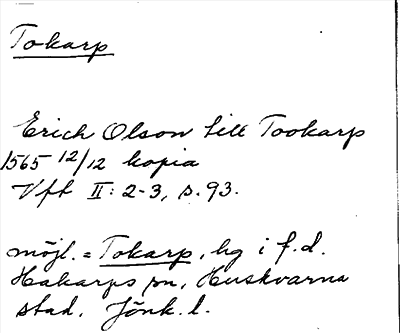 Tokarp
Erich Olson till Tookarp
1565 12/12 kopia
Vft II: 2-3, s. 93.
möjl. = Tokarp, hg i f.d.
Hakarps sn, Huskvarna
stad, Jönk. l.